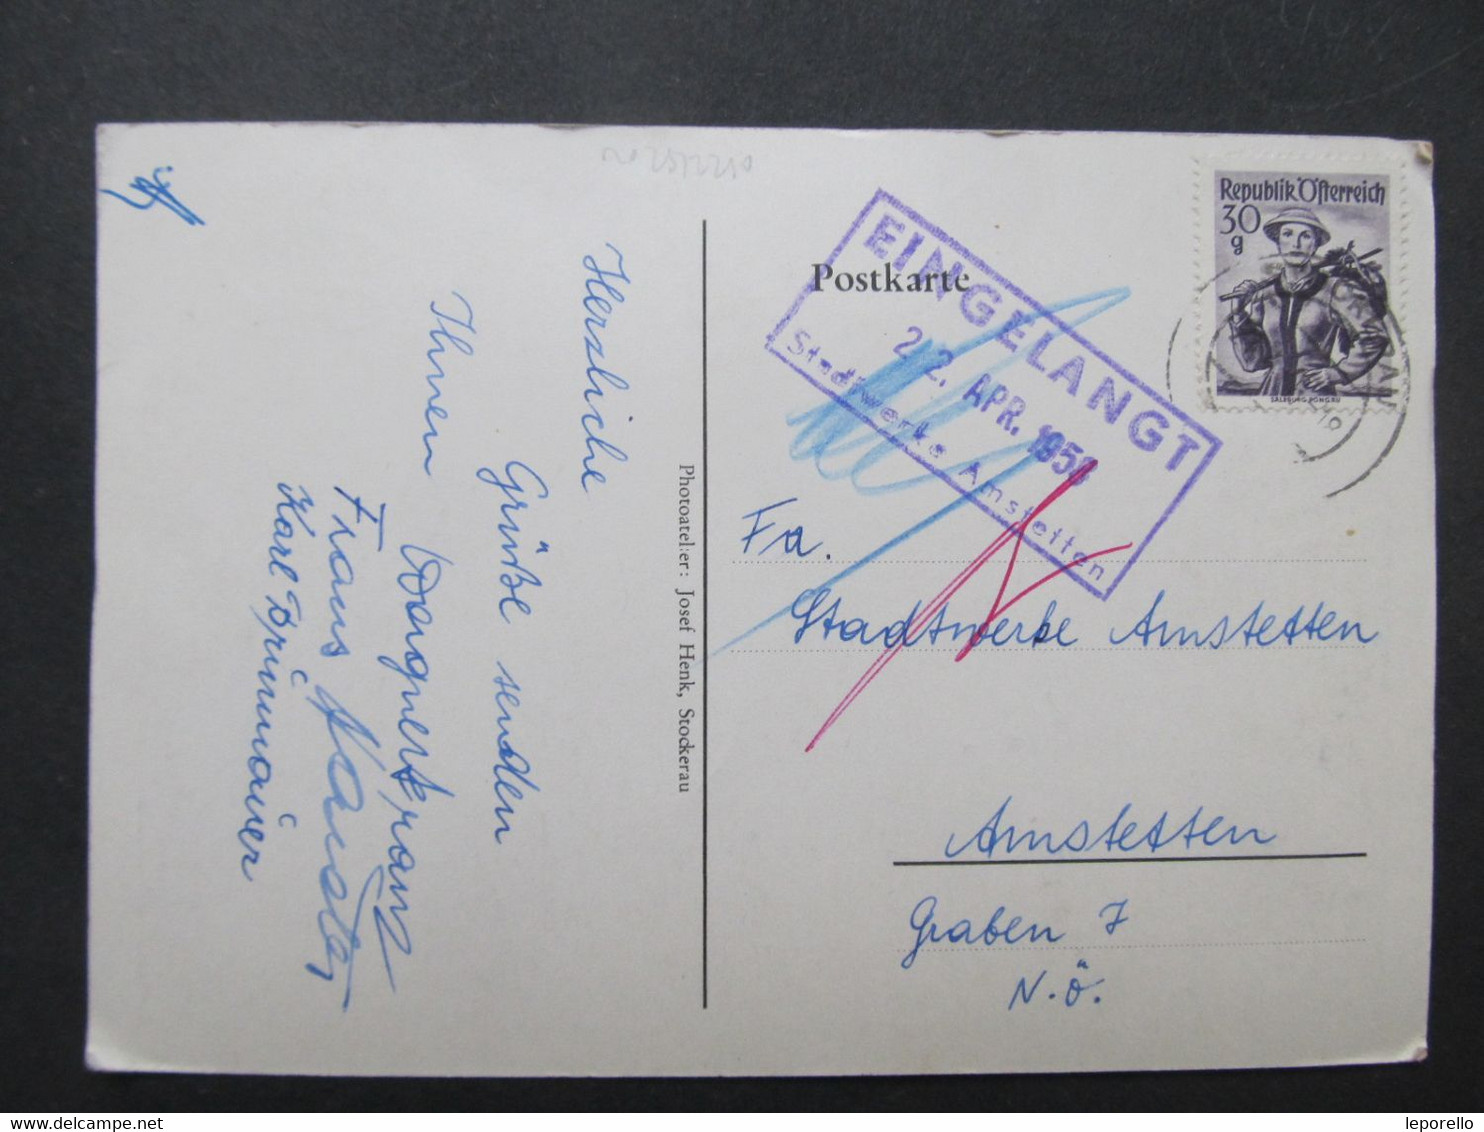 Herzliche
Grüße senden
Ihnen Wagner Franz
Franz
Karl Brunmaier
Photoatelier: Josef Henk, Stockerau
Postkarte
EINGELANGT
22. APR. 1958
Stadtwerke Amstetten
Republik Österreich
30
g
SALZBURG, PONGAU
Fa.
Stadtwerke Amstetten
Amstetten
Graben 7
N.Ö.
www.delcampe.net
leporello